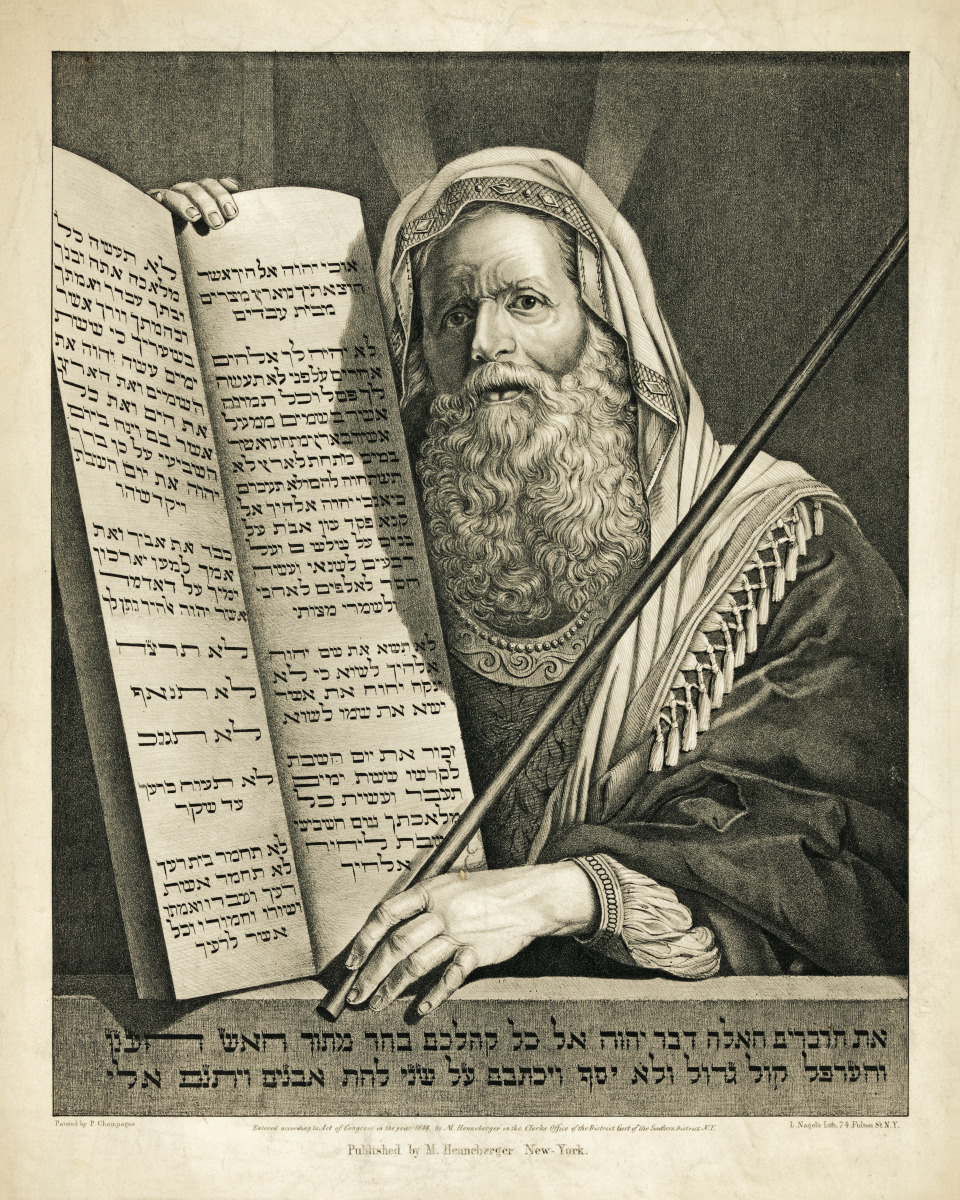 אנכי יהוה אלהיך אשר
הוצאתיך מארץ מצרים
מבית עבדים
לא יהיה לך אלהים
אחרים על פני לא תעשה
לך פסל וכל תמונה
אשר בשמים ממעל
אשר בארץ מתחת ואשר
במים מתחת לארץ לא
תשתחוה להם ולא תעבדם
כי אנכי יהוה אלהיך אל
קנא פקד עון אבת על
בנים על שלשים ועל
רבעים לשנאי ועשה
חסד לאלפים לאהבי
ולשמרי מצותי
לא תשא את שם יהוה
אלהיך לשוא כי לא
ינקה יהוה את אשר
ישא את שמו לשוא
זכור את יום השבת
לקדשו ששת ימים
תעבד ועשית כל
מלאכתך יום השביעי
שבת ליהוה
אלהיך
לא תעשה כל
מלאכה אתה ובנך
ובתך עבדך ואמתך
ובהמתך וגרך אשר
בשעריך כי ששת
ימים עשה יהוה את
השמים ואת הארץ
את הים ואת כל
אשר בם וינח ביום
השביעי על כן ברך
יהוה את יום השבת
ויקדשהו
כבד את אביך ואת
אמך למען יארכון
ימיך על האדמה
אשר יהוה אלהיך נתן לך
לא תרצח
לא תנאף
לא תגנב
לא תענה ברעך
עד שקר
לא תחמד בית רעך
לא תחמד אשת
רעך ועבדו ואמתו
ושורו וחמורו וכל
אשר לרעך
את הדברים האלה דבר יהוה אל כל קהלכם בהר מתוך האש הענן
והערפל קול גדול ולא יסף ויכתבם על שני לחת אבנים ויתנם אלי
Painted by P. Champagne
Entered according to Act of Congress in the year by M. Henneberger in the Clerks Office of the District Court of the Southern District N.Y.
L. Nagel's Lith. 74. Fulton St. N.Y.
Published by M. Henneberger New-York.